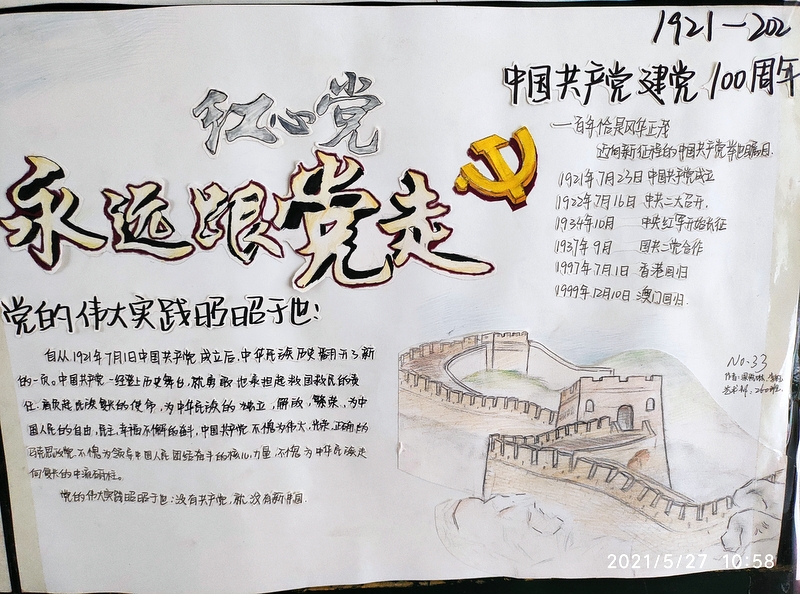 1921—202
中国共产党建党100周年
红心党
永远跟党走
一百年恰是风华正茂
迈向新征程的中国共产党举世瞩目.
1921年7月23日 中国共产党成立
1922年7月16日 中共二大召开.
1934年10月 中央红军开始长征
1937年9月 国共二党合作
1997年7月1日 香港回归
1999年12月10日 澳门回归.
党的伟大实践昭昭于世:
自从1921年7月1日中国共产党成立后,中华民族历史翻开了新
的一页。中国共产党一经登上历史舞台,就勇敢地承担起救国救民的责
任.肩负起民族复兴的使命,为中华民族的独立,解放,繁荣,为中
国人民的自由,民主,幸福不懈的奋斗,中国共产党不愧为伟大,光荣,正确的
马克思政党.不愧为领导中国人民团结奋斗的核心力量,不愧为中华民族走
向复兴的中流砥柱。
党的伟大实践昭昭于世:没有共产党,就没有新中国.
No.33
作者:
2021/5/27 10:58